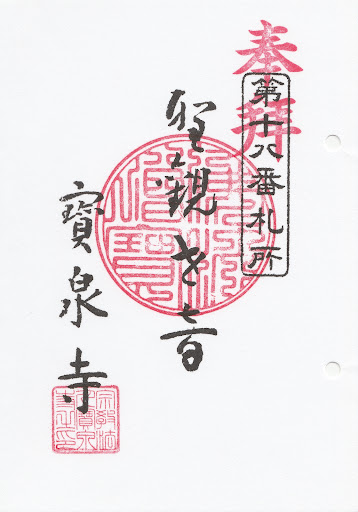 奉拝
第十八番札所
聖観世音
寳泉寺